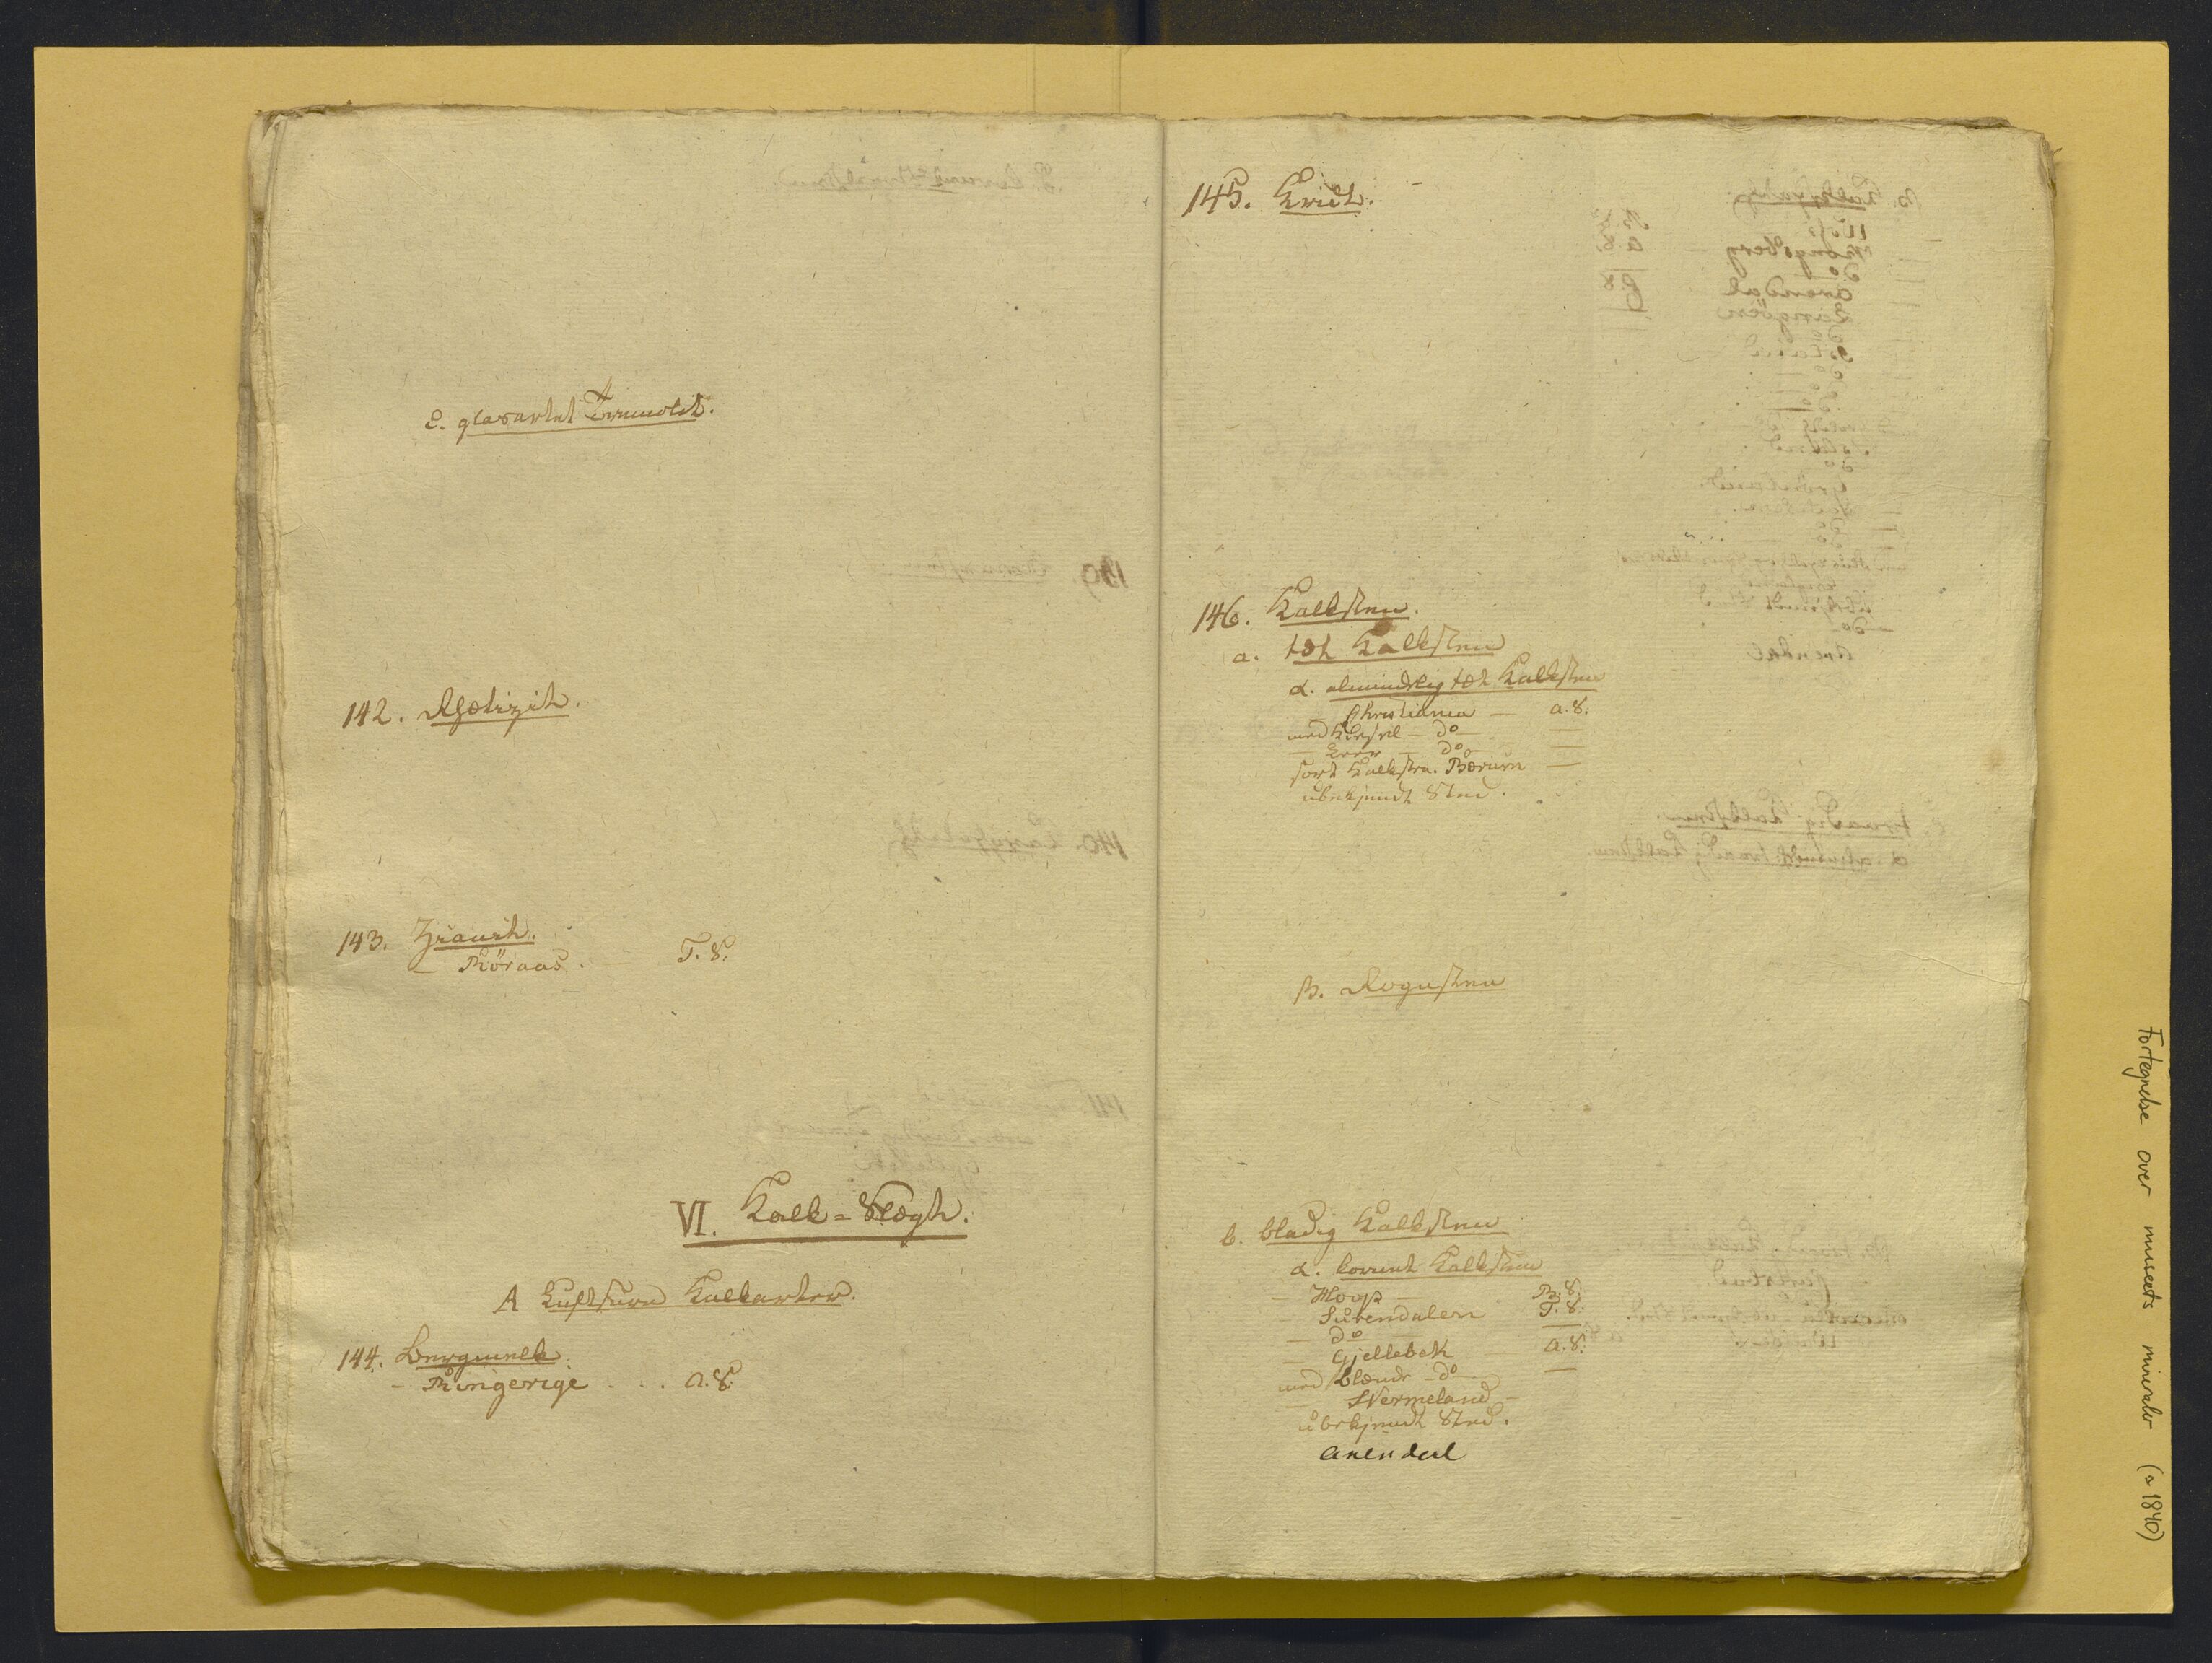 c. glasartet Tremolit.
142. Rhætizit.
143. Zianit.
— Röraas. — T. S.
VI. Kalk-Slægt.
A Luftsure Kalkarter.
144. Bergmelk.
— Ringerige . . . A. S.
145. Kridt.
146. Kalksten.
a. tæt Kalksten
α. almindelig tæt Kalksten
Christiania — A. S.
med Kisel — do — —
— do — —
sort Kalksten. Bærum —
ubekjendt Sted.
β. Rogensten
b. bladig Kalksten
α. kornet Kalksten
— Hoop — B. S.
— Surendalen T. S.
— do — —
— Gjellebek — A. S.
med Blende — do — —
— Wermeland —
ubekjendt Sted.
Arendal
Fortegnelse over museets mineraler (ca 1840)